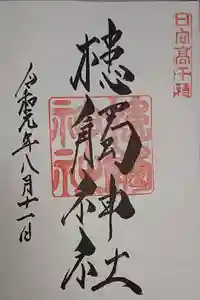 日向高千穂
槵觸神社
令和元年八月十一日